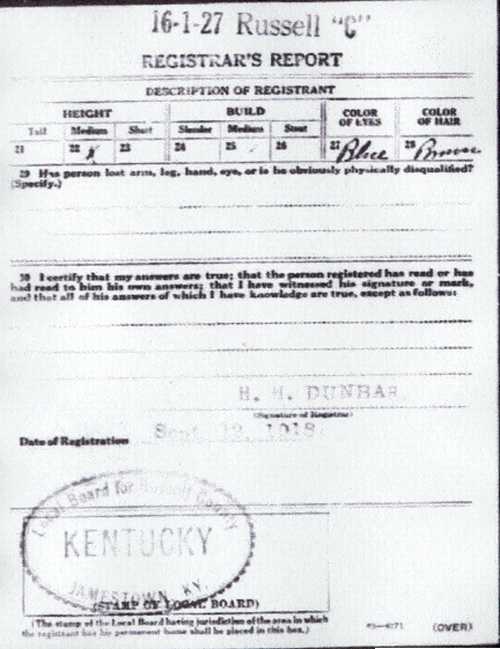 16-1-27 Russell "C"
REGISTRAR'S REPORT
DESCRIPTION OF REGISTRANT
HEIGHT BUILD COLOR OF EYES COLOR OF HAIR
Tall Medium Short Slender Medium Stout
21 22 x 23 24 25 26 27 Blue 28 Brown
29 Has person lost arm, leg, hand, eye, or is he obviously physically disqualified?
(Specify.)
30 I certify that my answers are true; that the person registered has read or has
had read to him his own answers; that I have witnessed his signature or mark,
and that all of his answers of which I have knowledge are true, except as follows:
H. H. DUNBAR
(Signature of Registrar)
Date of Registration Sept 12, 1918
Local Board for Russell County
KENTUCKY
JAMESTOWN, KY.
(STAMP OF LOCAL BOARD)
(The stamp of the Local Board having jurisdiction of the area in which
the registrant has his permanent home shall be placed in this box.)
(OVER)